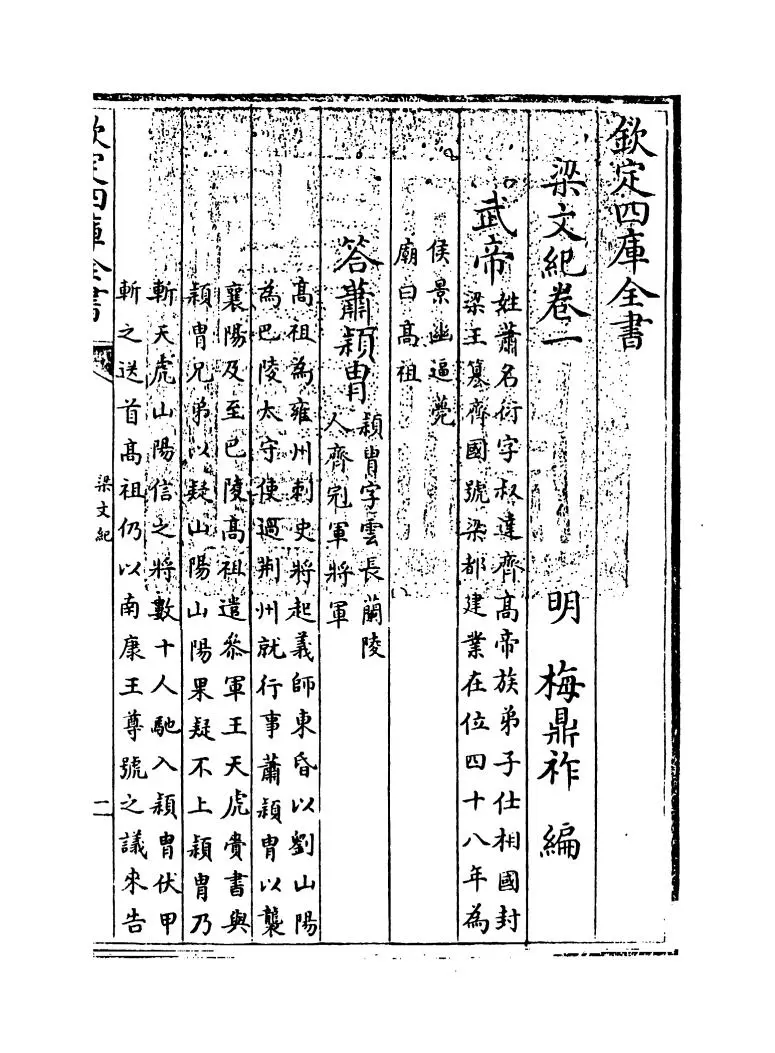 欽定四庫全書
梁文紀卷一
明 梅鼎祚 編
武帝
姓蕭名衍字叔達齊高帝族弟子仕相國封
梁王篡齊國號梁都建業在位四十八年為
侯景幽逼薨
廟曰高祖
答蕭穎胄
穎胄字雲長蘭陵
人齊冠軍將軍
高祖為雍州刺史將起義師東昏以劉山陽
為巴陵太守使過荆州就行事蕭穎胄以襲
襄陽及至巴陵高祖遣叅軍王天虎賫書與
穎胄兄弟以疑山陽山陽果疑不上穎胄乃
斬天虎山陽信之將數十人馳入穎胄伏甲
斬之送首高祖仍以南康王尊號之議來告
欽定四庫全書
梁文紀